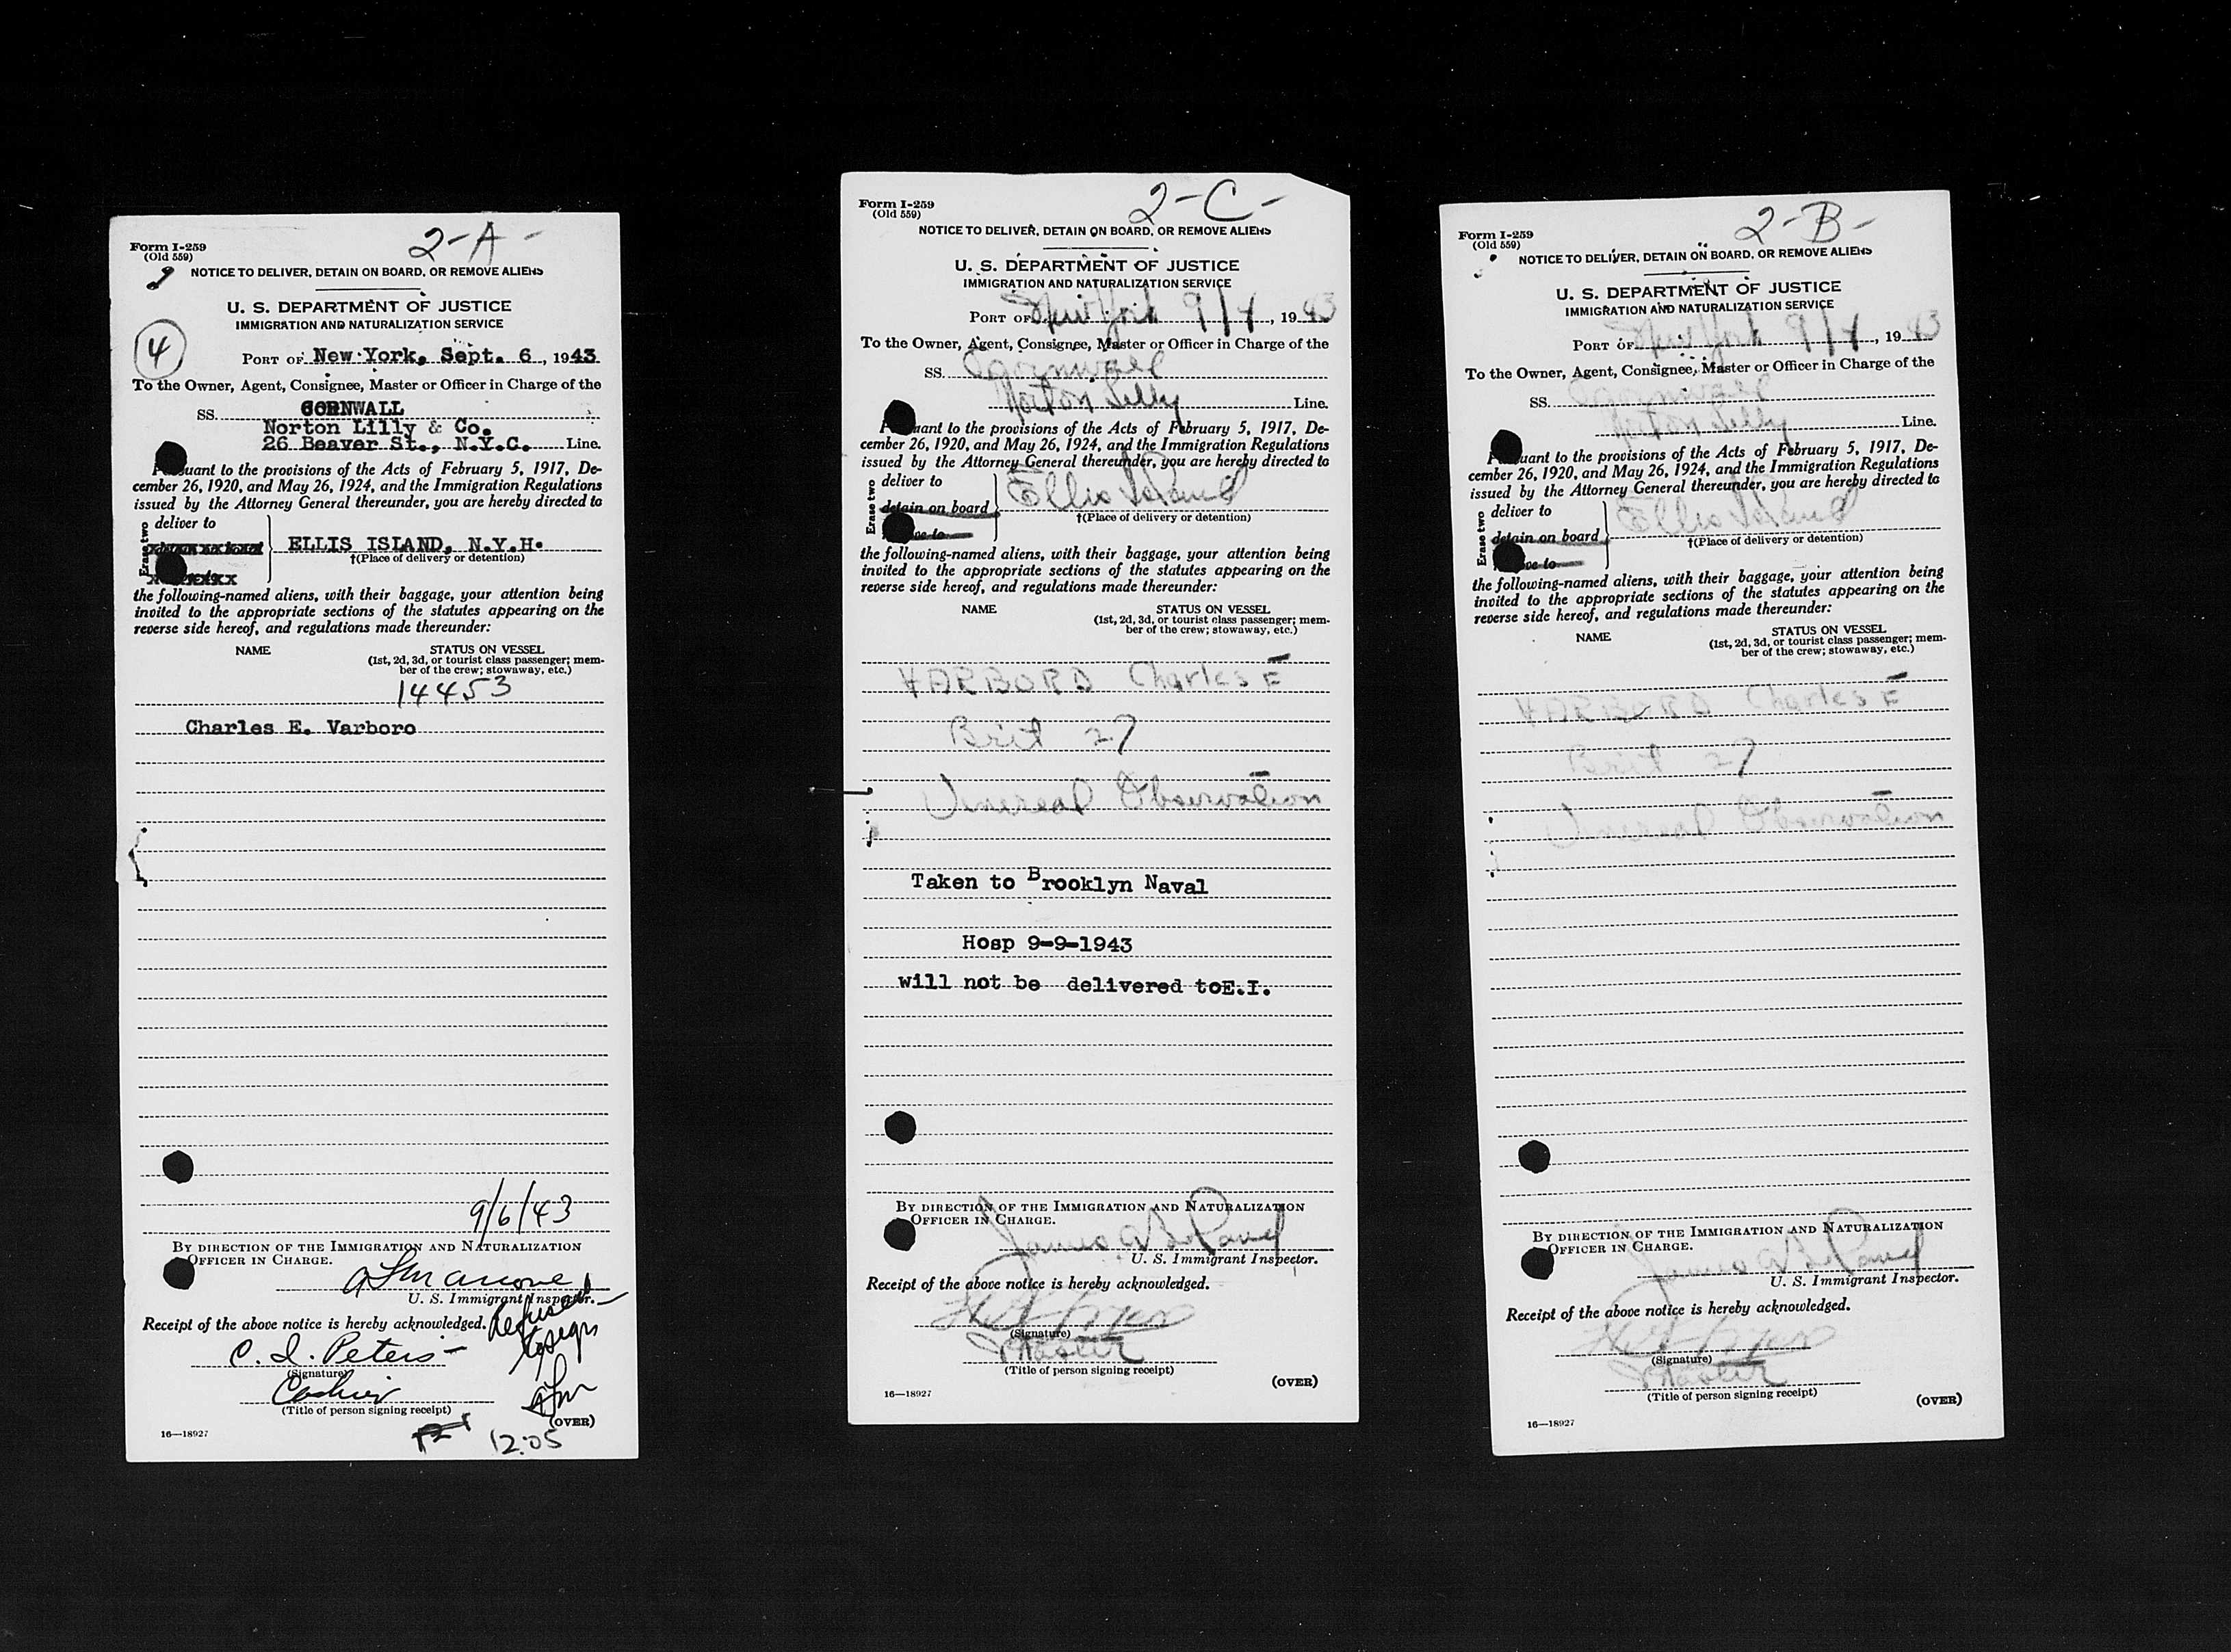 2-A-
Form I-259
(Old 559)
NOTICE TO DELIVER, DETAIN ON BOARD, OR REMOVE ALIENS
U. S. DEPARTMENT OF JUSTICE
IMMIGRATION AND NATURALIZATION SERVICE
4
PORT OF New York, Sept. 6, 1943
To the Owner, Agent, Consignee, Master or Officer in Charge of the
SS. CORNWALL
Norton Lilly & Co.
26 Beaver St., N.Y.C. Line.
Pursuant to the provisions of the Acts of February 5, 1917, De-
cember 26, 1920, and May 26, 1924, and the Immigration Regulations
issued by the Attorney General thereunder, you are hereby directed to
Erase two
deliver to
ELLIS ISLAND, N.Y.H.
†(Place of delivery or detention)
the following-named aliens, with their baggage, your attention being
invited to the appropriate sections of the statutes appearing on the
reverse side hereof, and regulations made thereunder:
NAME STATUS ON VESSEL
(1st, 2d, 3d, or tourist class passenger; mem-
ber of the crew; stowaway, etc.)
14453
Charles E. Varboro
9/6/43
BY DIRECTION OF THE IMMIGRATION AND NATURALIZATION
OFFICER IN CHARGE.
U. S. Immigrant Inspector.
Receipt of the above notice is hereby acknowledged.
Refused
to sign
C. I. Peters
(Signature)
Cashier
(Title of person signing receipt)
(OVER)
16—18927
12:05
2-C-
Form I-259
(Old 559)
NOTICE TO DELIVER, DETAIN ON BOARD, OR REMOVE ALIENS
U. S. DEPARTMENT OF JUSTICE
IMMIGRATION AND NATURALIZATION SERVICE
PORT OF New York 9/4, 1943
To the Owner, Agent, Consignee, Master or Officer in Charge of the
SS. Cornwall
Norton Lilly Line.
Pursuant to the provisions of the Acts of February 5, 1917, De-
cember 26, 1920, and May 26, 1924, and the Immigration Regulations
issued by the Attorney General thereunder, you are hereby directed to
Erase two
deliver to
detain on board
Ellis Island
†(Place of delivery or detention)
the following-named aliens, with their baggage, your attention being
invited to the appropriate sections of the statutes appearing on the
reverse side hereof, and regulations made thereunder:
NAME STATUS ON VESSEL
(1st, 2d, 3d, or tourist class passenger; mem-
ber of the crew; stowaway, etc.)
VARBORO Charles E
Brit 27
Venereal Observation
Taken to Brooklyn Naval
Hosp 9-9-1943
will not be delivered toE.I.
BY DIRECTION OF THE IMMIGRATION AND NATURALIZATION
OFFICER IN CHARGE.
James
U. S. Immigrant Inspector.
Receipt of the above notice is hereby acknowledged.
(Signature)
Master
(Title of person signing receipt)
(OVER)
16—18927
2-B-
Form I-259
(Old 559)
NOTICE TO DELIVER, DETAIN ON BOARD, OR REMOVE ALIENS
U. S. DEPARTMENT OF JUSTICE
IMMIGRATION AND NATURALIZATION SERVICE
PORT OF New York 9/4, 1943
To the Owner, Agent, Consignee, Master or Officer in Charge of the
SS. Cornwall
Norton Lilly Line.
Pursuant to the provisions of the Acts of February 5, 1917, De-
cember 26, 1920, and May 26, 1924, and the Immigration Regulations
issued by the Attorney General thereunder, you are hereby directed to
Erase two
deliver to
detain on board
Ellis Island
†(Place of delivery or detention)
the following-named aliens, with their baggage, your attention being
invited to the appropriate sections of the statutes appearing on the
reverse side hereof, and regulations made thereunder:
NAME STATUS ON VESSEL
(1st, 2d, 3d, or tourist class passenger; mem-
ber of the crew; stowaway, etc.)
VARBORO Charles E
Brit 27
Venereal Observation
BY DIRECTION OF THE IMMIGRATION AND NATURALIZATION
OFFICER IN CHARGE.
James
U. S. Immigrant Inspector.
Receipt of the above notice is hereby acknowledged.
(Signature)
Master
(Title of person signing receipt)
(OVER)
16—18927